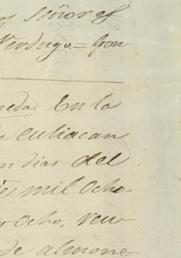 señores
Verdugo = fran
En la
culiacan
dias del
mil ocho
ocho, reu
de almone